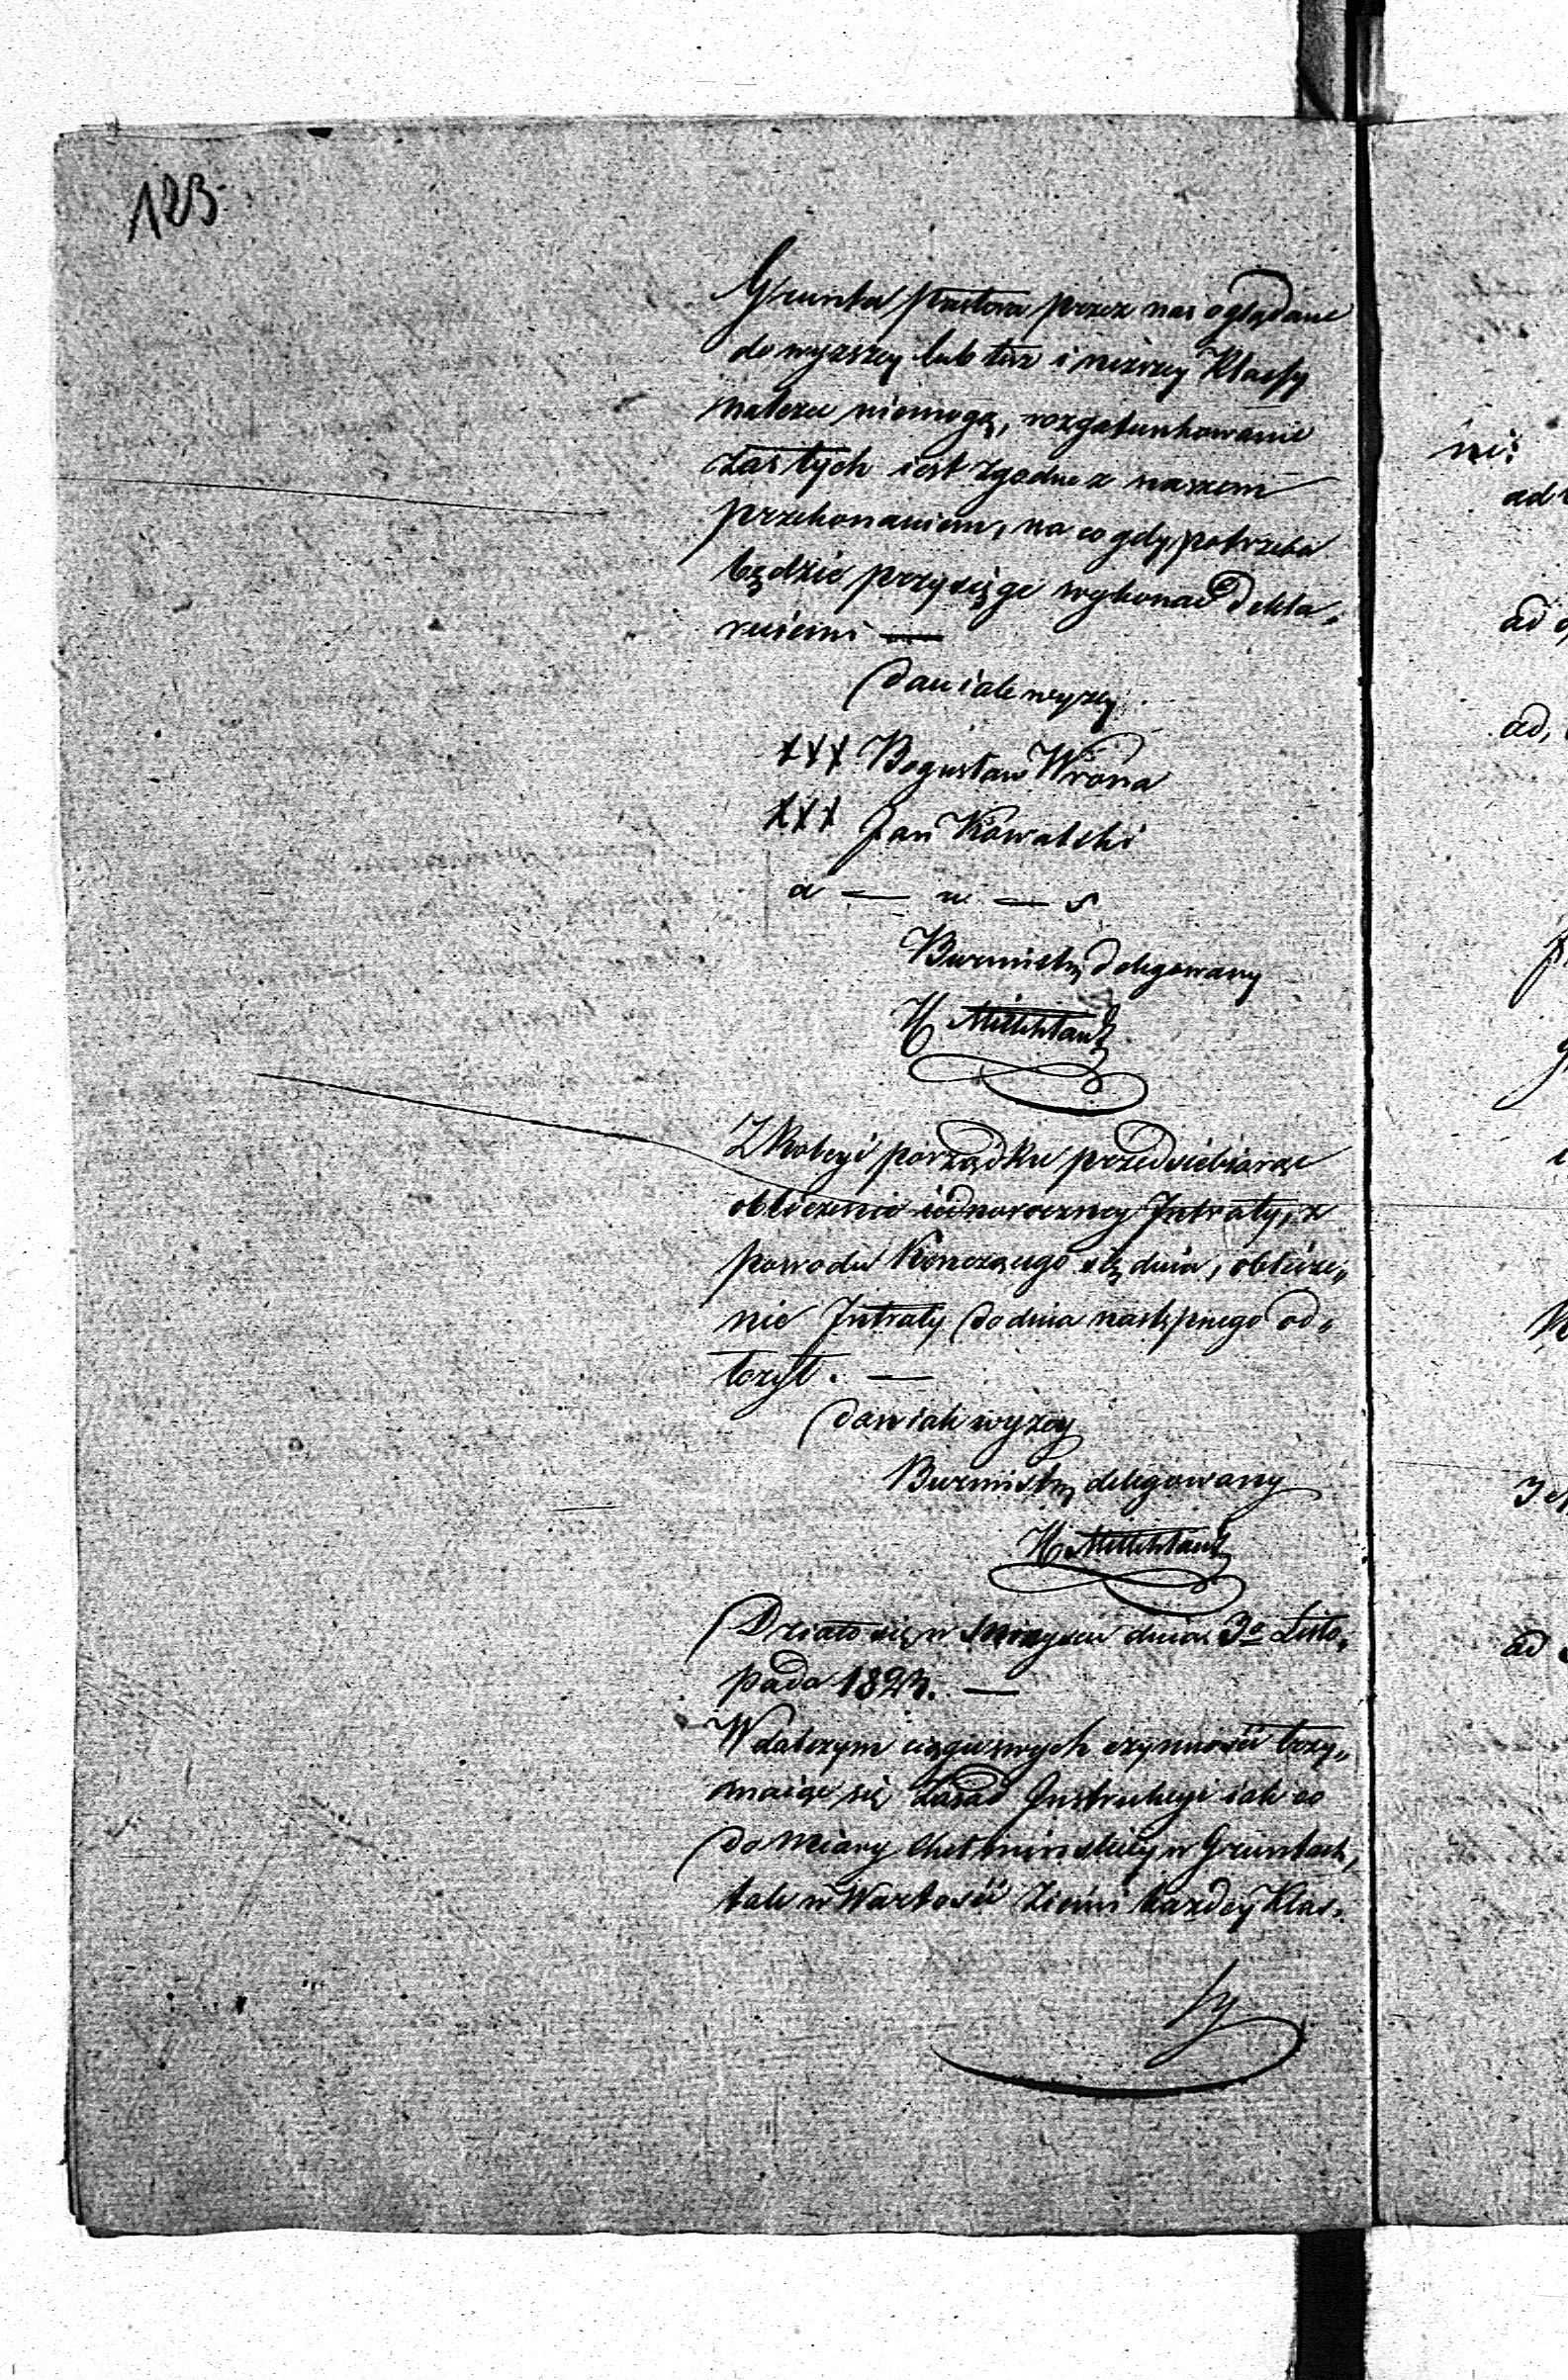 123
Grunta przez nas oglądane
do wyzszey lub tez i nizszey Klassy
nalezec niemogą, rozgatunkowanie
zas tych iest zgodne z naszem
przekonaniem, na co gdy potrzeba
będzie przysięge wykonac dekla„
ruiemi —
dan iak wyzey.
XXX Bogusław Wrona
XXX Jan Kowalski
a — u — s
Burmistrz delegowany
H
Z Koleyi porządku przedsiebiorąc
obliczenie iednoroczney Intraty, z
powodu Konczącego się dnia, oblicze„
nie Intraty do dnia następnego od„
łozył. —
dan iak wyzey
Burmistrz delegowany
H
Działo się w dnia 3o Listo„
pada 1823. —
W dalszym ciągu swych czynnosci trzy„
maiąc się zasad Instrukcyi iak co
do Miary Chełminskiey w Gruntach,
tak w Wartosci Ziemi kazdey Klas„
sy
ni:
ad
ad
ad,
ad